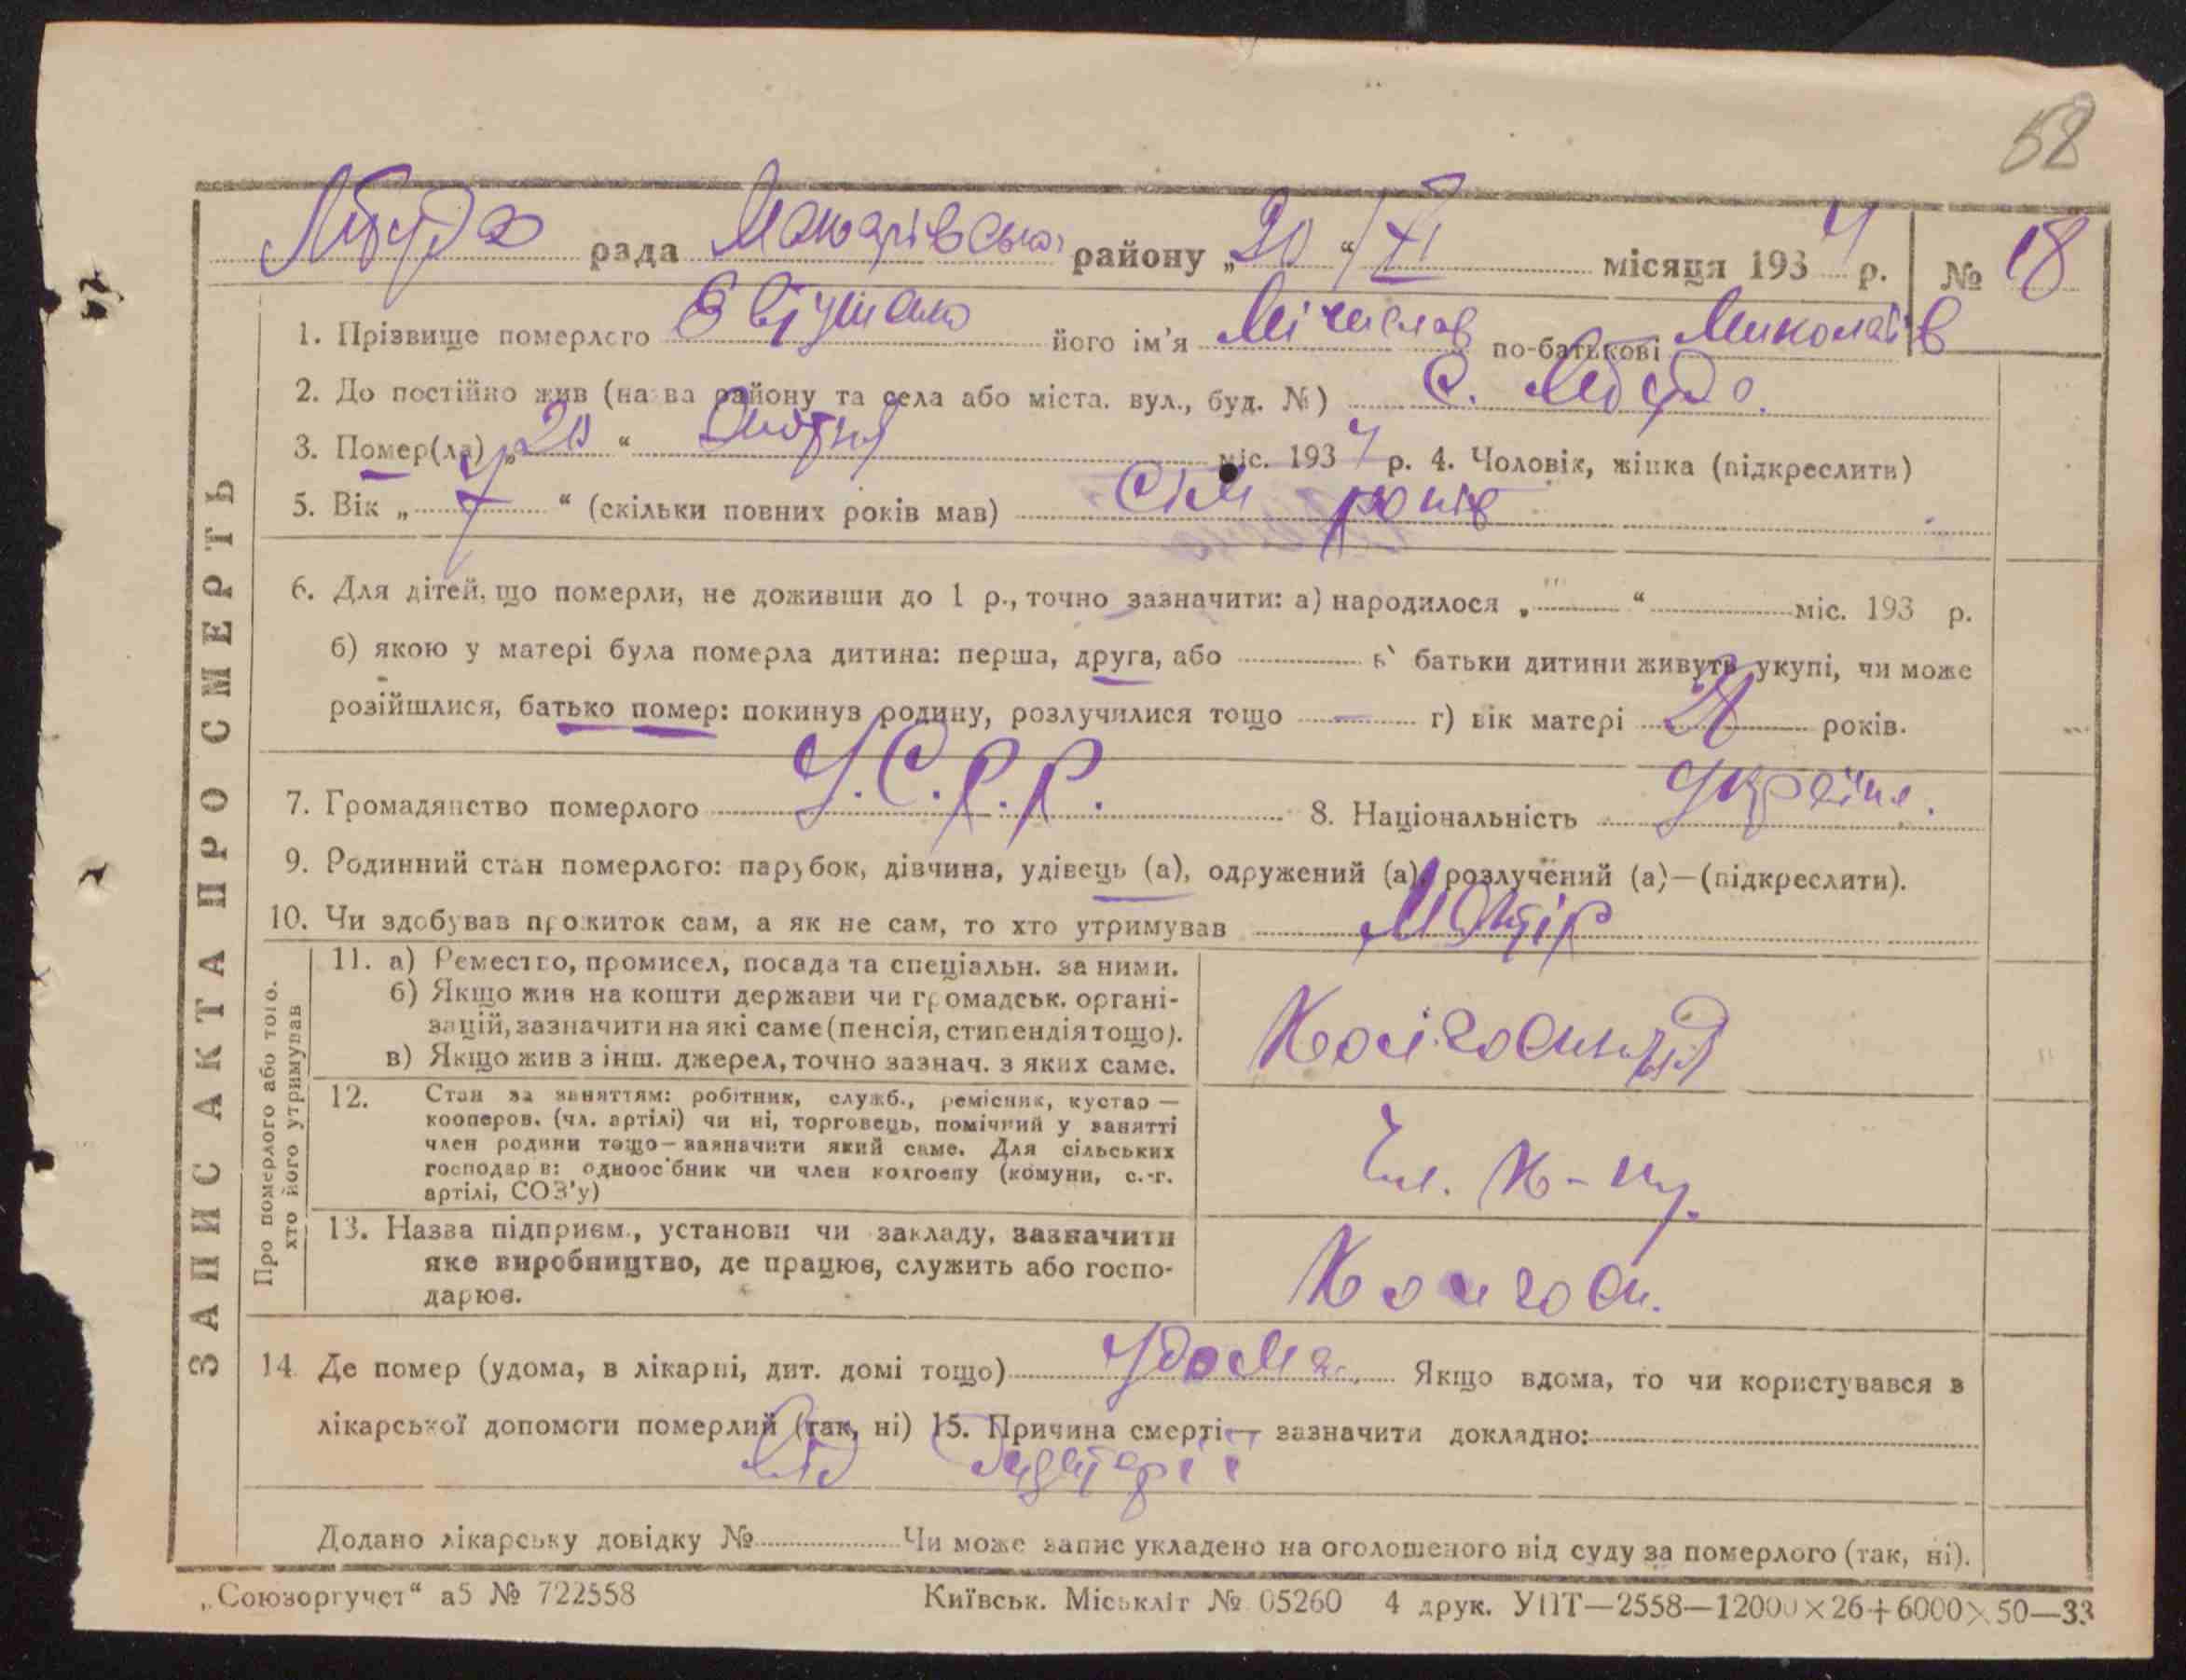 58
рада Макарівськ. району „20“ XI місяця 1934 р. № 18
ЗАПИС АКТА ПРО СМЕРТЬ
1. Прізвище померлого його ім'я Мічислав по-батькові Миколаїв
2. До постійно жив (назва району та села або міста. вул., буд. №) с.
3. Помер(ла) „20“ міс. 1934 р. 4. Чоловік, жінка (підкреслити)
5. Вік „7“ (скільки повних років мав) сім років
6. Для дітей, що померли, не доживши до 1 р., точно зазначити: а) народилося „ “ міс. 193 р.
б) якою у матері була померла дитина: перша, друга, або в) батьки дитини живуть укупі, чи може
розійшлися, батько помер: покинув родину, розлучилися тощо — г) вік матері років.
7. Громадянство померлого У.С.Р.Р. 8. Національність Україн.
9. Родинний стан померлого: парубок, дівчина, удівець (а), одружений (а), розлучений (а)—(підкреслити).
10. Чи здобував прожиток сам, а як не сам, то хто утримував Матір
Про померлого або того.
хто його утримував
11. а) Ремество, промисел, посада та спеціальн. за ними.
б) Якщо жив на кошти держави чи громадськ. органі-
зацій, зазначити на які саме (пенсія, стипендія тощо).
в) Якщо жив з інш. джерел, точно зазнач. з яких саме.
12. Стан за заняттям: робітник, служб., ремісник, кустар —
кооперов. (чл. артілі) чи ні, торговець, помічний у занятті
член родини тощо—зазначити який саме. Для сільських
господарів: одноосібник чи член колгоспу (комуни, с.-г.
артілі, СОЗ'у)
Чл. к-пу.
13. Назва підприєм., установи чи закладу, зазначити
яке виробництво, де працює, служить або госпо-
дарює.
Колгосп.
14. Де помер (удома, в лікарні, дит. домі тощо) удома. Якщо вдома, то чи користувався в
лікарської допомоги померлий (так, ні) 15. Причина смерті— зазначити докладно:
від
Додано лікарську довідку № Чи може запис укладено на оголошеного від суду за померлого (так, ні).
„Союзоргучет“ а5 № 722558 Київськ. Міськліт № 05260 4 друк. УПТ—2558—12000×26+6000×50—33